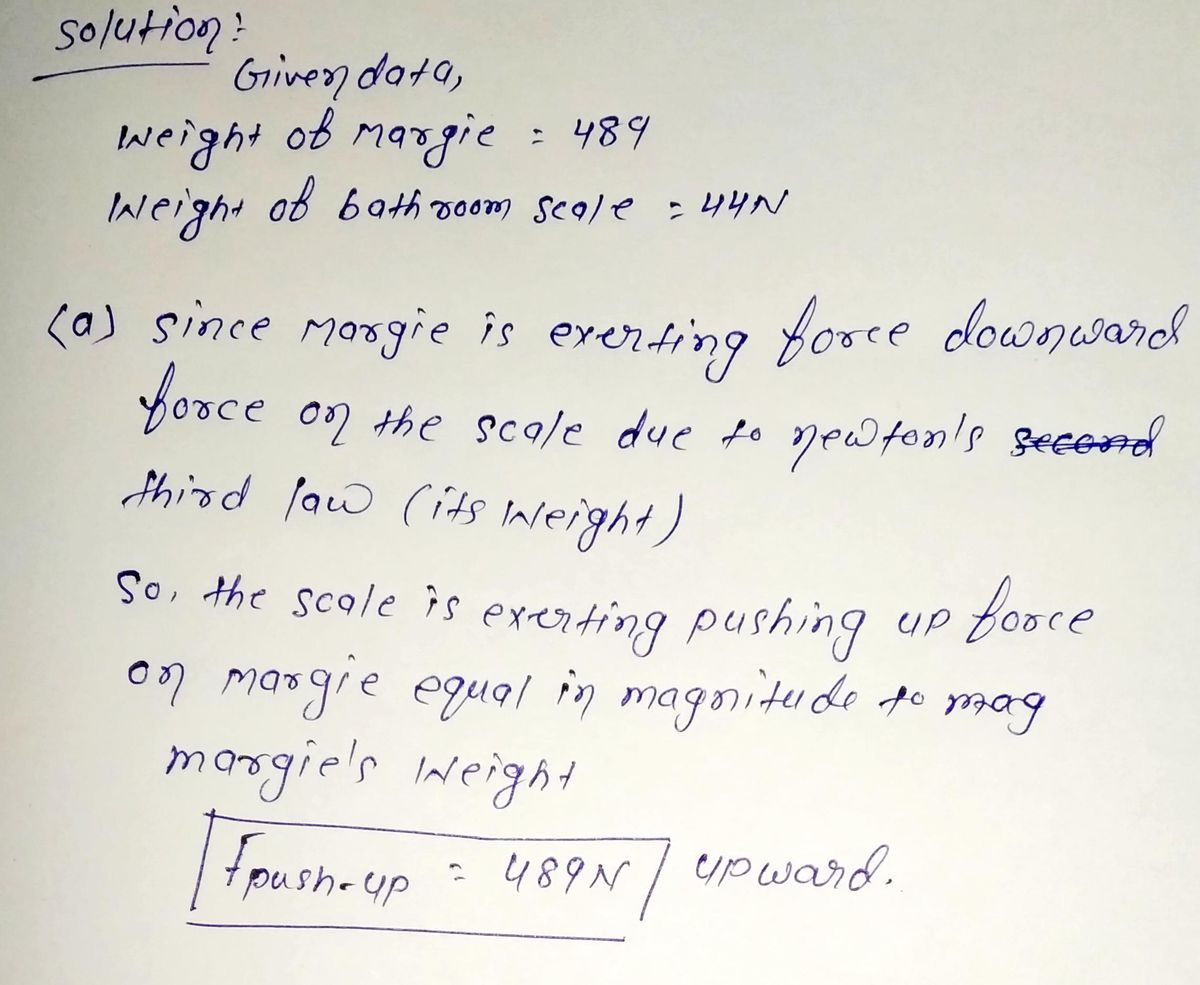 Solution:
Given data,
Weight of Margie = 489
Weight of bathroom scale = 44N
(a) Since Margie is exerting force downward
force on the scale due to newton's second
third law (its weight)
So, the scale is exerting pushing up force
on Margie equal in magnitude to mag
margie's weight
Fpush-up = 489N upward.